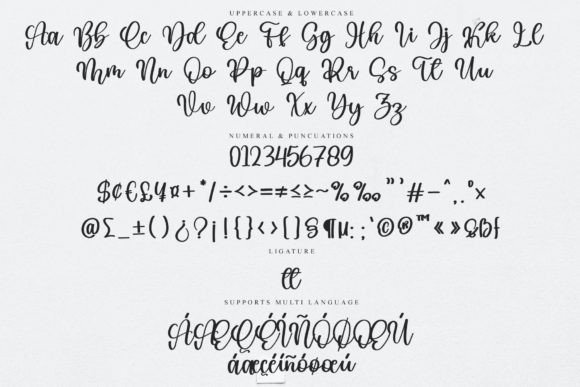 UPPERCASE & LOWERCASE
Aa Bb Cc Dd Ee Ff Gg Hh Ii Jj Kk Ll
Mm Nn Oo Pp Qq Rr Ss Tt Uu
Vv Ww Xx Yy Zz
NUMERAL & PUNCUATIONS
0123456789
$¢€£¥¤+*/÷<>=≠≤≥~%‰"'#-^,.°×
@∑_±()¿?¡!{}<>[]§¶µ:;'©®™«»
LIGATURE
tt
SUPPORTS MULTI LANGUAGE
ÁÆÇÉÍÑÓØŒÚ
áæçéíñóøœú